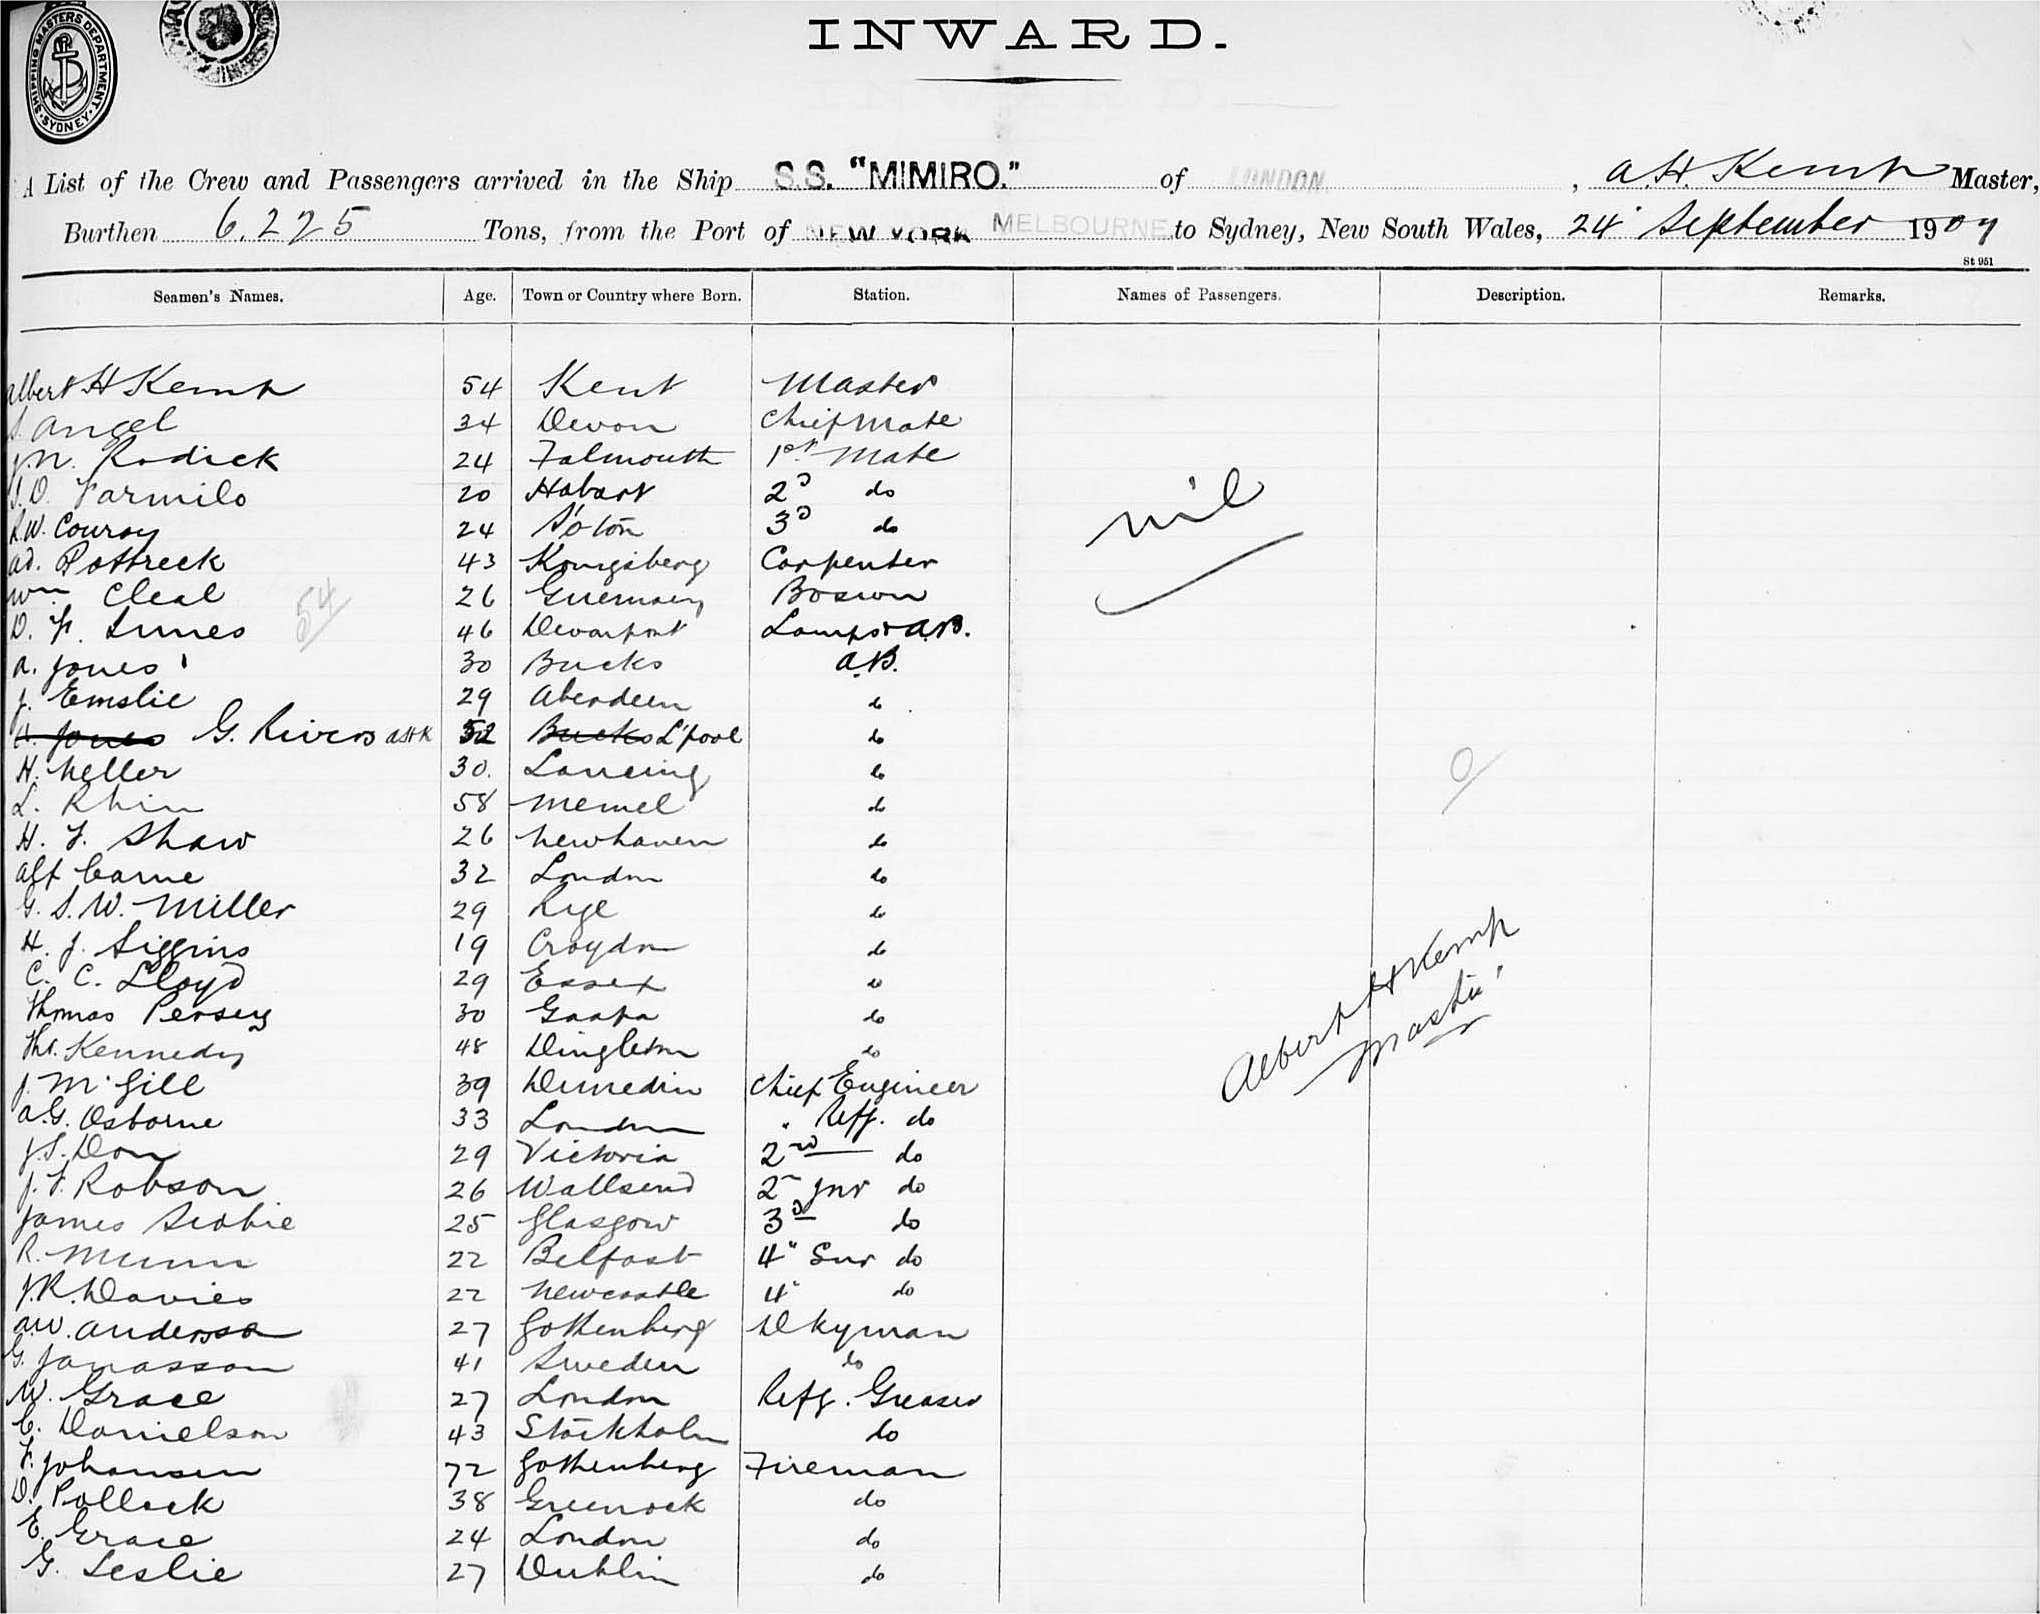 SHIPPING MASTERS DEPARTMENT
SYDNEY
INWARD.
A List of the Crew and Passengers arrived in the Ship S.S. "MIMIRO." of LONDON, A. H. Kemp Master,
Burthen 6.225 Tons, from the Port of NEW YORK MELBOURNE to Sydney, New South Wales, 24 September 1909
St 951
Seamen's Names. Age. Town or Country where Born. Station. Names of Passengers. Description. Remarks.
Albert H Kemp 54 Kent Master
S. Angel 34 Devon Chief Mate
J.N. Rodick 24 Falmouth 1st Mate
Varmilo 20 Hobart 2D do
nil
Couroy 24 S'oton 3D do
Ad. Pottreck 43 Kongsberg Carpenter
Wm Cleal 26 Guernsey Bosun
54
D. F. Innes 46 Devonport Lamps & A.B.
A. Jones 30 Bucks A.B.
J. Emslie 29 Aberdeen do
A. Jones G. Rivers AHK 52 Bucks L'pool do
H. Neller 30. Lancing do
0
L. Rhin 58 Memel do
H. F. Shaw 26 Newhaven do
Alf Carne 32 London do
G. S. W. Miller 29 Rye do
H. J. Siggins 19 Croydon do
C. C. Lloyd 29 Essex do
Albert H Kemp
Master
Thomas Persey 30 do
Thos. Kennedy 48 Dingleton do
J. McGill 39 Dunedin Chief Engineer
A.G. Osborne 33 London " Reff. do
J.S. Don 29 Victoria 2nd do
J. F. Robson 26 Wallsend 2 Jnr do
James Scobie 25 Glasgow 3D do
R. Munn 22 Belfast 4" Snr do
J.R. Davies 22 Newcastle 4" do
A.W. Anderson 27 Gothenberg Dkyman
G. Janasson 41 Sweden do
W. Grace 27 London Refg. Greaser
C. Danielson 43 Stockholm do
F. Johansen 72 Gothenberg Fireman
D. Pollock 38 Greenock do
E. Grace 24 London do
G. Leslie 27 Dublin do